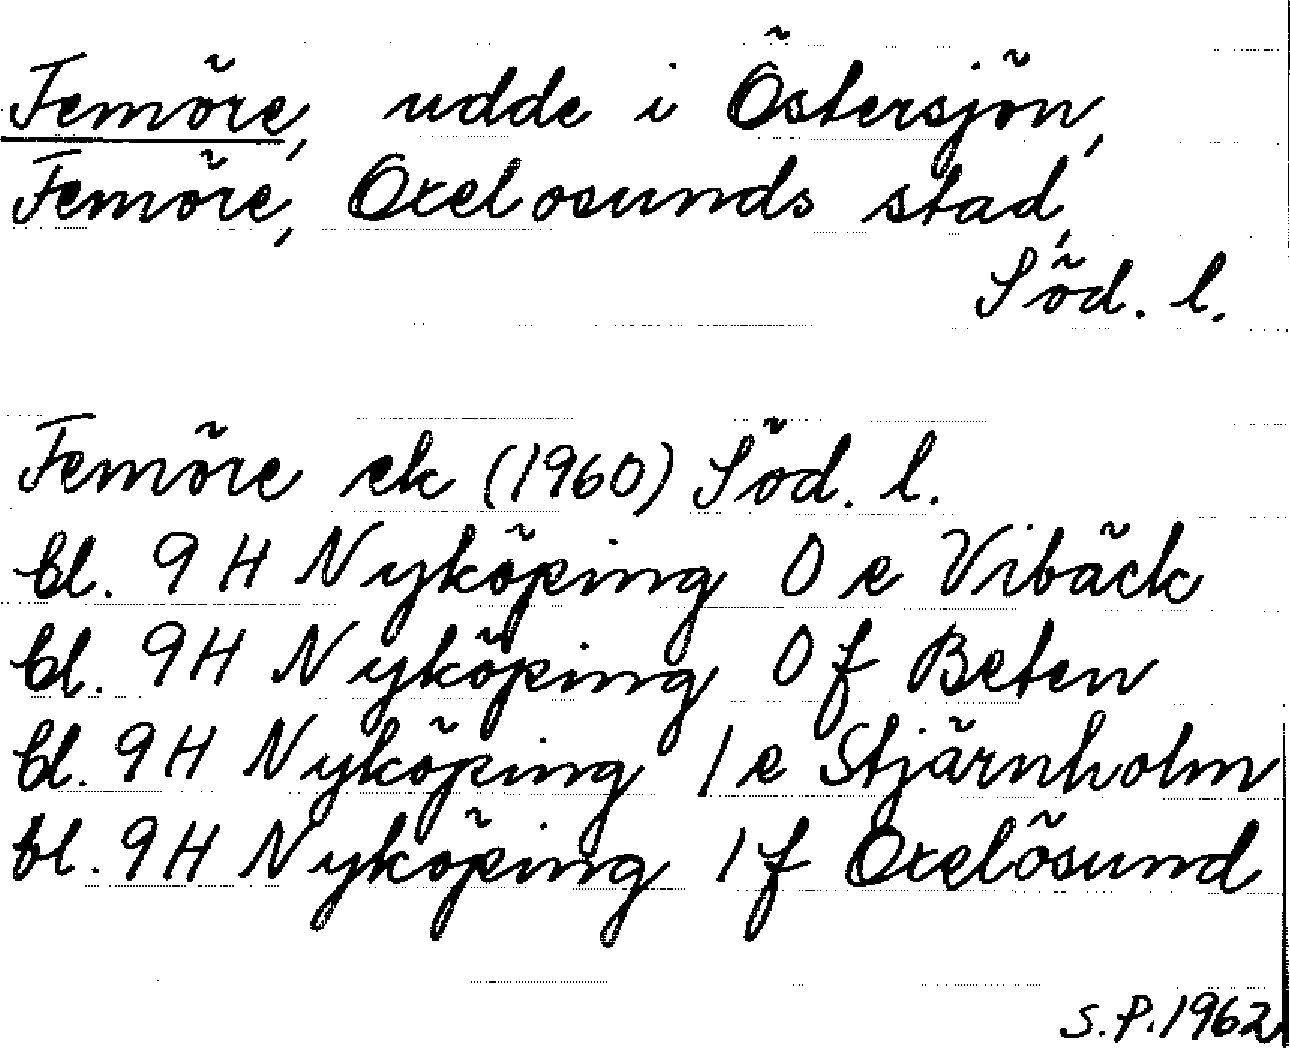 Femöre, udde i Östersjön,
Femöre, Oxelosunds stad,
Söd. l.
Femöre ek (1960) Söd. l.
bl. 9 H Nyköping 0 e Vibäck
bl. 9 H Nyköping 0 f Beten
bl. 9 H Nyköping 1 e Stjärnholm
bl. 9 H Nyköping 1 f Oxelösund
S.P. 1962